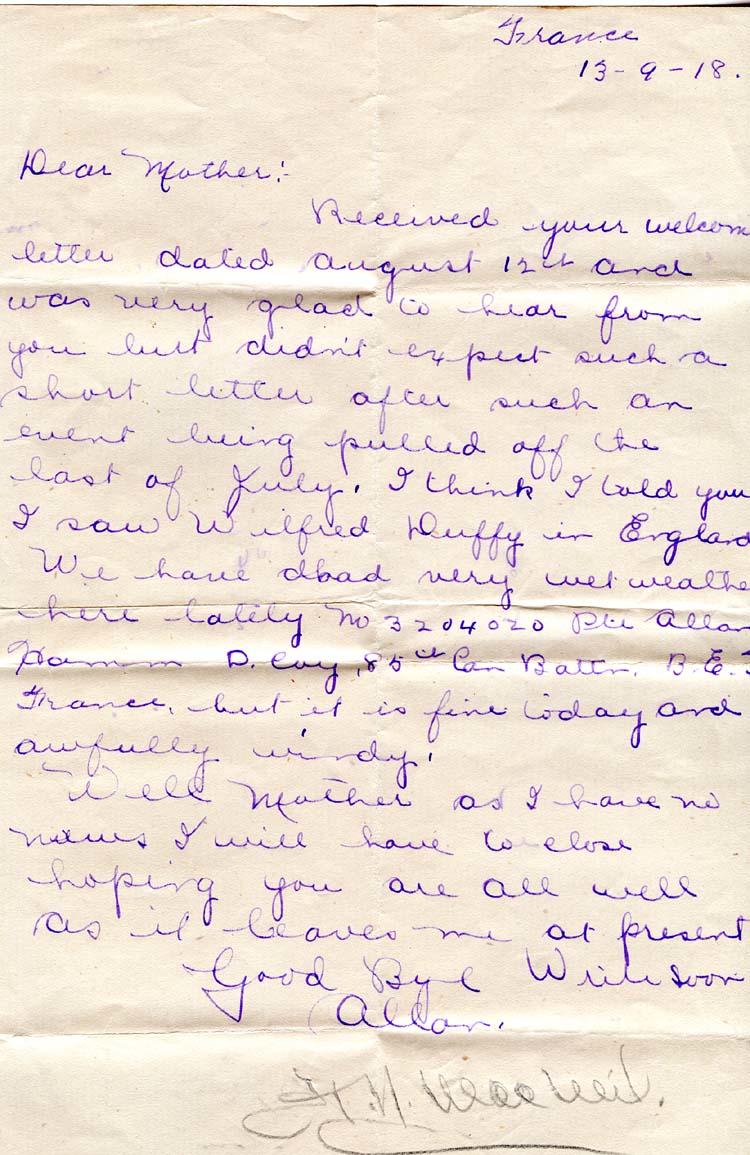 France
13-9-18.
Dear Mother:-
Received your welcom
letter dated august 12th and
was very glad to hear from
you but didn't expect such a
short letter after such an
event being pulled off the
last of July. I think I told you
I saw Wilfred Duffy in England
We have dbad very wet weathe
here lately No 3204020 Pte Allan
Hamm D. Coy, 85th Can Battn. B.E.
France, but it is fine today and
awfully windy.
Well Mother as I have no
news I will have to close
hoping you are all well
as it leaves me at present
Good Bye Write soon
Allan.